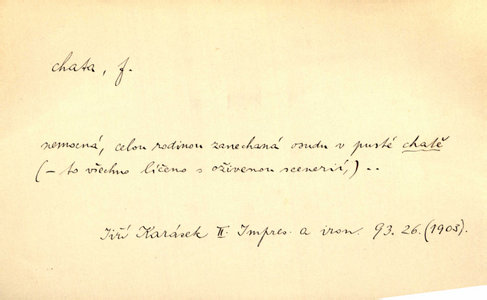 chata, f.
nemocná, celou rodinou zanechaná osudu v pusté chatě
(– to všechno líčeno s oživenou scenerií,) ..
Jiří Karásek II. Impres. a iron. 93. 26. (1903).